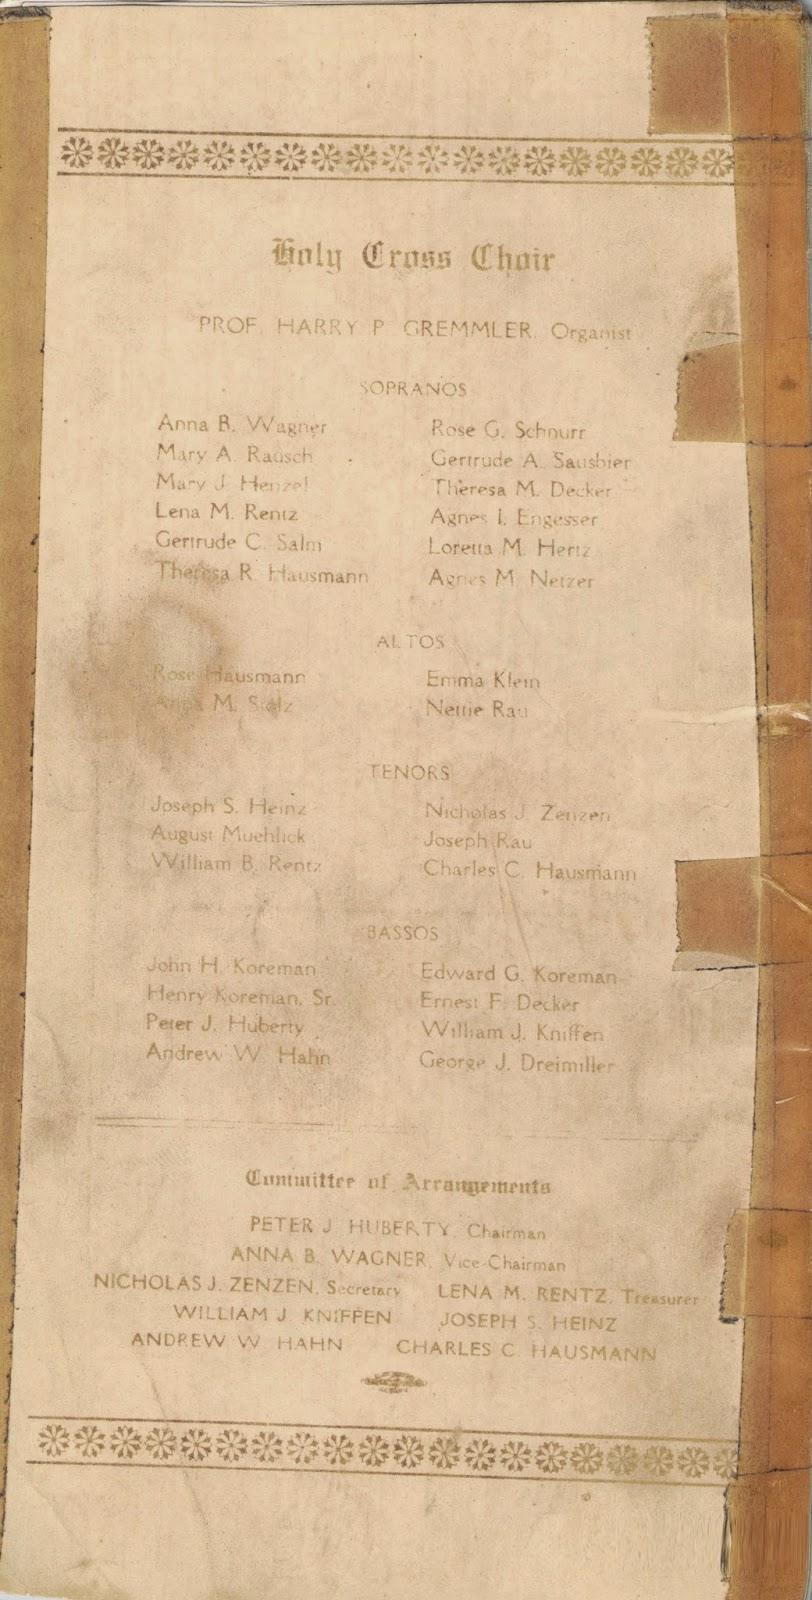 Holy Cross Choir
PROF. HARRY P. GREMMLER, Organist
SOPRANOS
Anna B. Wagner
Mary A. Rausch
Mary J. Henzel
Lena M. Rentz
Gertrude C. Salm
Theresa R. Hausmann
Rose G. Schnurr
Gertrude A. Sausbier
Theresa M. Decker
Agnes I. Engesser
Loretta M. Hertz
Agnes M. Netzer
ALTOS
Rose Hausmann
Anna M. Stolz
Emma Klein
Nettie Rau
TENORS
Joseph S. Heinz
August Muehlick
William B. Rentz
Nicholas J. Zenzen
Joseph Rau
Charles C. Hausmann
BASSOS
John H. Koreman
Henry Koreman, Sr.
Peter J. Huberty
Andrew W. Hahn
Edward G. Koreman
Ernest F. Decker
William J. Kniffen
George J. Dreimiller
Committee of Arrangements
PETER J. HUBERTY, Chairman
ANNA B. WAGNER, Vice-Chairman
NICHOLAS J. ZENZEN, Secretary LENA M. RENTZ, Treasurer
WILLIAM J. KNIFFEN JOSEPH S. HEINZ
ANDREW W. HAHN CHARLES C. HAUSMANN